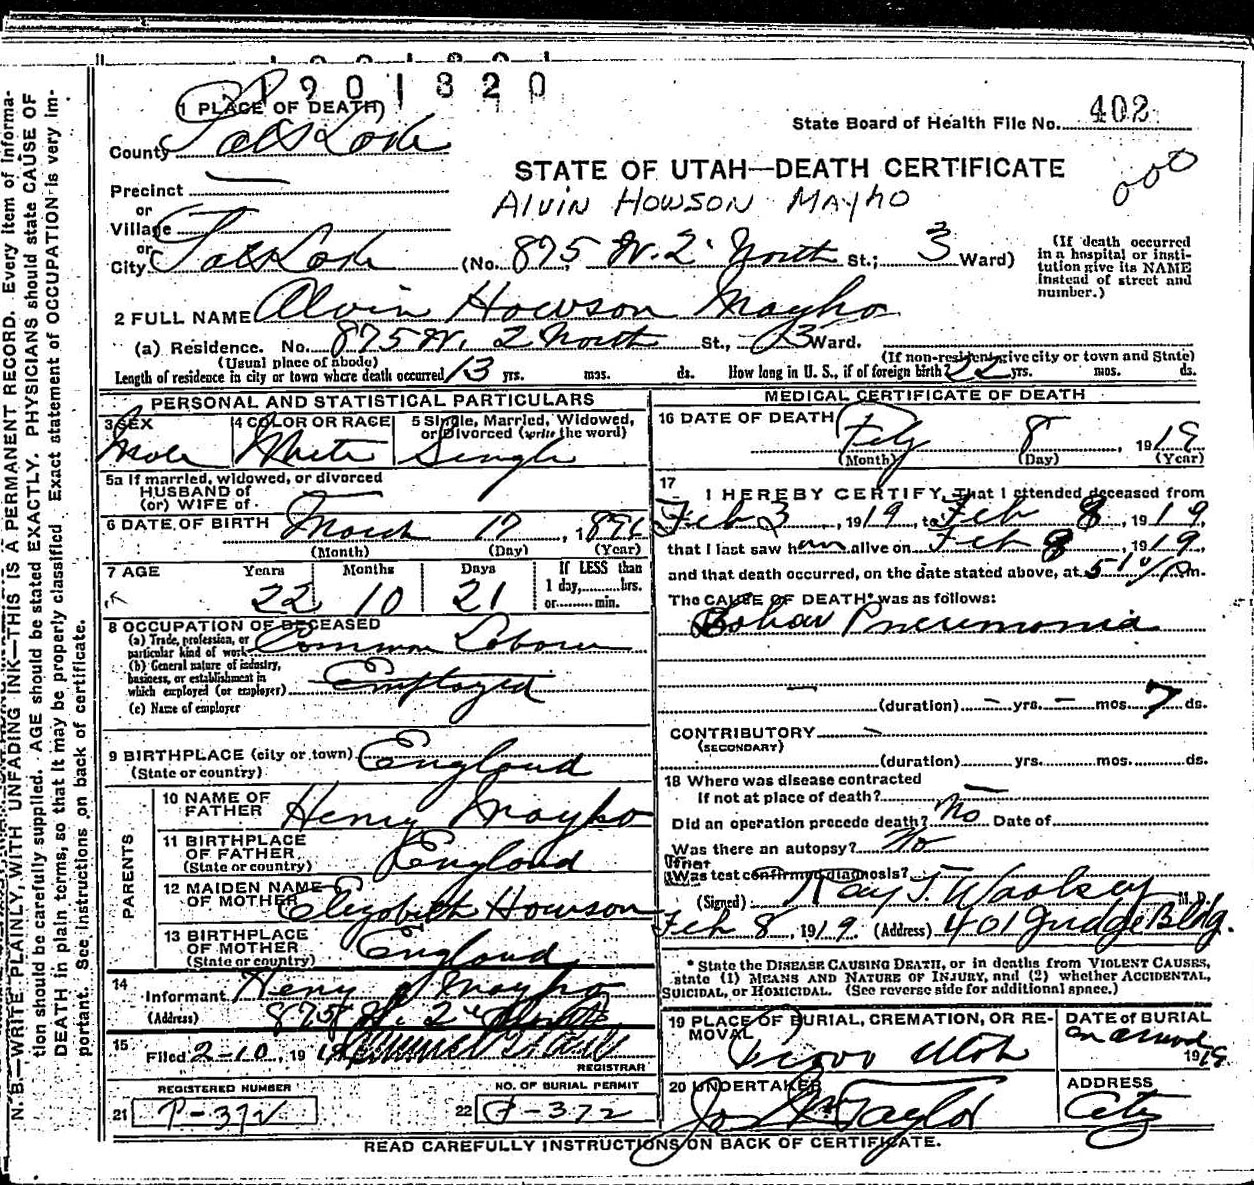 1901820
1 PLACE OF DEATH
State Board of Health File No. 402
County Salt Lake
STATE OF UTAH—DEATH CERTIFICATE
000
Precinct
Alvin Howson Mayho
or
Village
or
City Salt Lake (No. 875 W. 2 North St.; 3 Ward)
(If death occurred in a hospital or institution give its NAME instead of street and number.)
2 FULL NAME Alvin Howson Mayho
(a) Residence. No. 875 W. 2 North St., 3 Ward.
(Usual place of abode) (If non-resident give city or town and State)
Length of residence in city or town where death occurred 13 yrs. mos. ds. How long in U. S., if of foreign birth? 22 yrs. mos. ds.
PERSONAL AND STATISTICAL PARTICULARS
3 SEX 4 COLOR OR RACE 5 Single, Married, Widowed,
or Divorced (write the word)
Male White Single
5a If married, widowed, or divorced
HUSBAND of
(or) WIFE of
6 DATE OF BIRTH March 17, 1896
(Month) (Day) (Year)
7 AGE Years Months Days If LESS than
1 day, hrs.
22 10 21 or min.
8 OCCUPATION OF DECEASED
(a) Trade, profession, or
particular kind of work Common Laborer
(b) General nature of industry,
business, or establishment in
which employed (or employer) Employed
(c) Name of employer
9 BIRTHPLACE (city or town) England
(State or country)
PARENTS
10 NAME OF
FATHER Henry Mayho
11 BIRTHPLACE
OF FATHER England
(State or country)
12 MAIDEN NAME
OF MOTHER Elizabeth Howson
13 BIRTHPLACE
OF MOTHER England
(State or country)
14
Informant Henry Mayho
(Address) 875 W. 2nd North
15
Filed 2-10, 191
REGISTRAR
REGISTERED NUMBER NO. OF BURIAL PERMIT
21 P-372 22 P-372
MEDICAL CERTIFICATE OF DEATH
16 DATE OF DEATH
Feb 8 1919
(Month) (Day) (Year)
17
I HEREBY CERTIFY, That I attended deceased from
Feb 3, 1919, to Feb 8, 1919,
that I last saw him alive on Feb 8, 1919,
and that death occurred, on the date stated above, at 510 P m.
The CAUSE OF DEATH* was as follows:
Lobar Pneumonia
(duration) — yrs. — mos. 7 ds.
CONTRIBUTORY
(SECONDARY)
(duration) yrs. mos. ds.
18 Where was disease contracted
If not at place of death?
Did an operation precede death? No Date of
Was there an autopsy? No
What
Was test confirmed diagnosis?
(Signed) Ray T. Woolsey M. D.
Feb 8, 1919. (Address) 401 Judge Bldg.
* State the DISEASE CAUSING DEATH, or in deaths from VIOLENT CAUSES,
state (1) MEANS AND NATURE OF INJURY, and (2) whether ACCIDENTAL,
SUICIDAL, or HOMICIDAL. (See reverse side for additional space.)
19 PLACE OF BURIAL, CREMATION, OR REMOVAL DATE OF BURIAL
Provo Utah on arrival
1919
20 UNDERTAKER ADDRESS
Jos Wm Taylor City
READ CAREFULLY INSTRUCTIONS ON BACK OF CERTIFICATE.
N. B.—WRITE PLAINLY, WITH UNFADING INK—THIS IS A PERMANENT RECORD. Every item of information should be carefully supplied. AGE should be stated EXACTLY. PHYSICIANS should state CAUSE OF DEATH in plain terms, so that it may be properly classified. Exact statement of OCCUPATION is very important. See instructions on back of certificate.